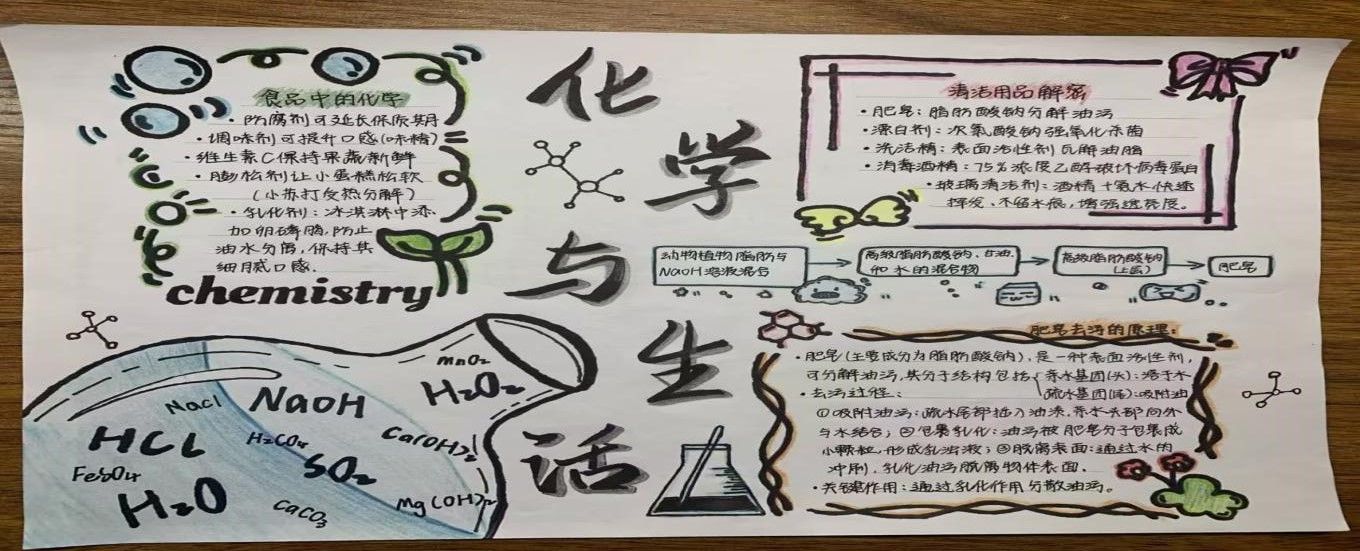 化学与生活
食品中的化学
·防腐剂可延长保质期
·调味剂可提升口感(味精)
·维生素C保持果蔬新鲜
·膨松剂让小蛋糕松软
(小苏打受热分解)
·乳化剂:冰淇淋中添
加卵磷脂,防止
油水分离,保持其
细腻口感.
chemistry
清洁用品解密
·肥皂:脂肪酸钠分解油污
·漂白剂:次氯酸钠强氧化杀菌
·洗洁精:表面活性剂瓦解油脂
·消毒酒精:75%浓度乙醇破坏病毒蛋白
·玻璃清洁剂:酒精+氨水快速
挥发、不留水痕,增强透亮度。
动物植物脂肪与
NaOH溶液混合
高级脂肪酸钠、甘油
和水的混合物
高级脂肪酸钠
(上层)
肥皂
肥皂去污的原理:
·肥皂(主要成分为脂肪酸钠),是一种表面活性剂,
可分解油污,其分子结构包括{亲水基团(头):溶于水
疏水基团(尾):吸附油
·去污过程:
①吸附油污:疏水尾部插入油渍,亲水头部向外
与水结合;②包裹乳化:油污被肥皂分子包裹成
小颗粒,形成乳浊液;③脱离表面:通过水的
冲刷,乳化油污脱离物体表面.
·关键作用:通过乳化作用分散油污。
MnO2
H2O2
Nacl
NaOH
HCL
H2CO4
Ca(OH)2
FeSO4
SO2
H2O
CaCO3
Mg(OH)2